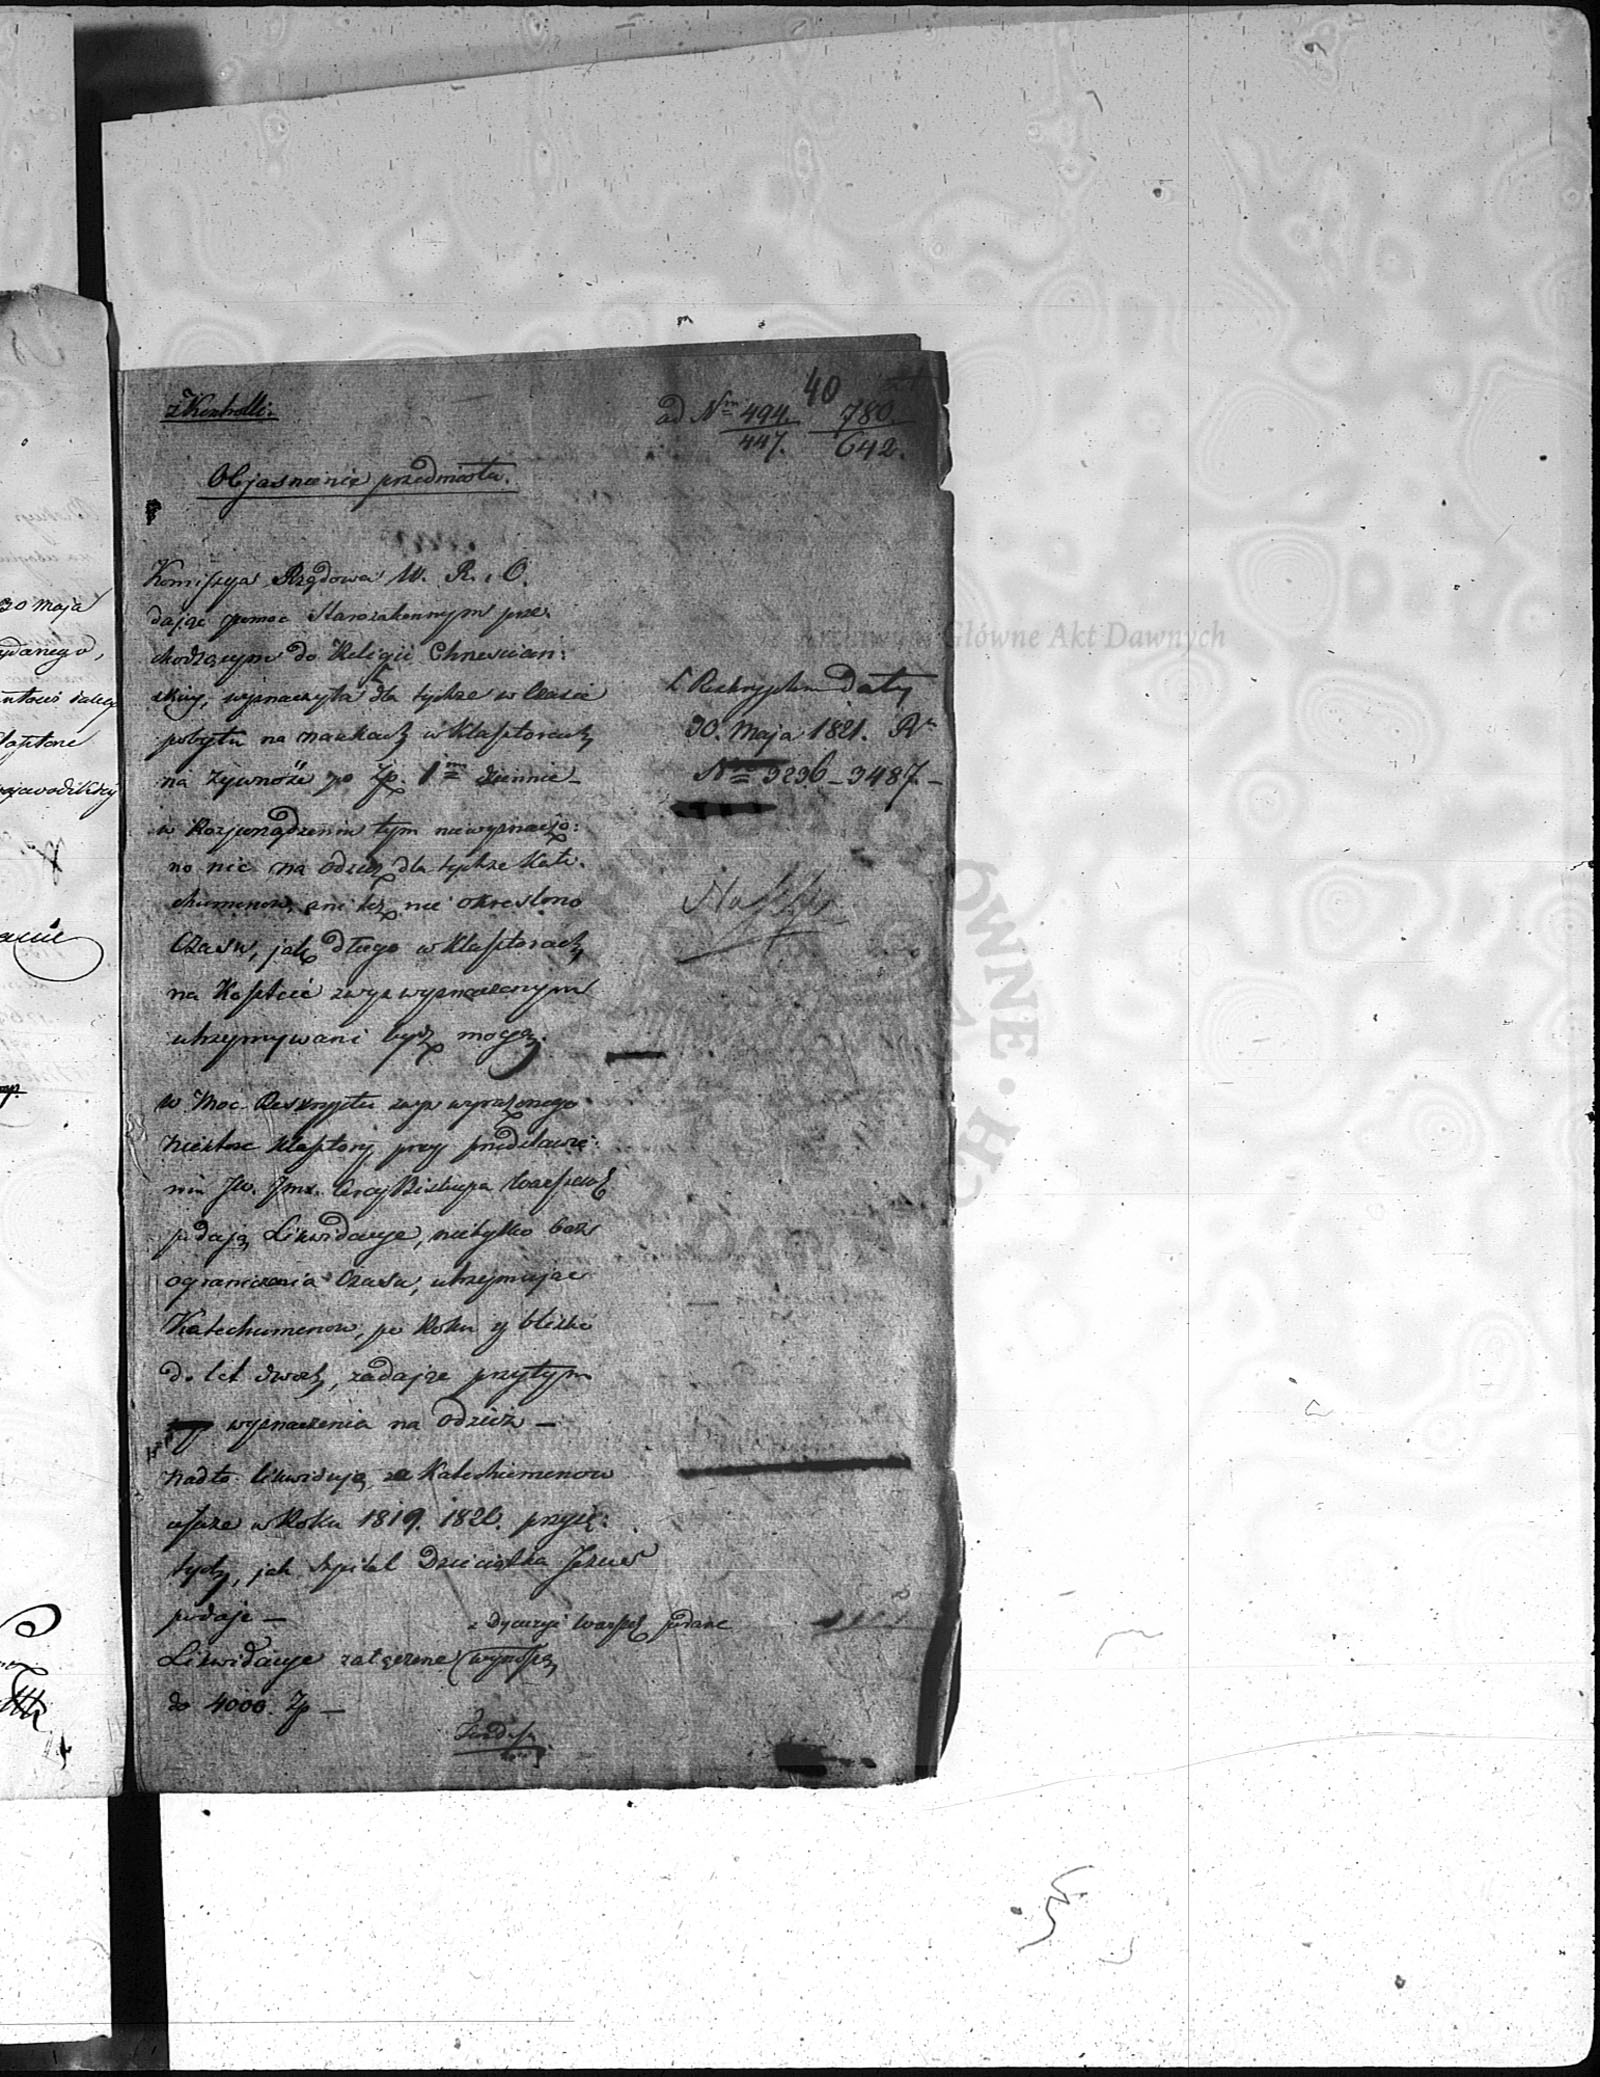 z Kontrolli.
40
ad Nm 494. 780.
447. 642.
Objasnienie przedmiotu.
Komissya Rządowa W. R. i O.
dając pomoc Starozakonnym prze-
chodzącym do Religii Chrescian:
skiey, wyznaczyła dla tychże w Czasie
pobytu na naukach w Klasztorach
na żywność po Zp. 1m dziennie –
Reskryptem Daty
30. Maja 1821. Ru
Nro 3236 – 3487 –
w Rozporządzeniu tym niewyznaczo:
no nic na odzież dla tychże Kate-
chumenow, ani też nie okreslono
Czasu, jak długo w Klasztorach
na Koszcie wyznaczonym
utrzymywani bydź mogą.
w Moc Reskryptu wyrażonego
niektore Klasztory przy przedstawie:
niu JW. Jmx. Biskupa Warszaws
podają Likwidacye, nietylko bez
ograniczenia Czasu, utrzymując
Katechumenow, po Roku y blisko
do lat dwoch, żądając przytym
wyznaczenia na odzież –
Nadto likwidują za Katechumenow
w Roku 1819. 1820. przyię:
tych, jak Szpital Dzieciątka Jezus
podaje –
z Dyecezyi Warsz podane
Likwidacye załączone wynoszą
do 4000. Zp –
30 Maja
Archiwum Główne Akt Dawnych